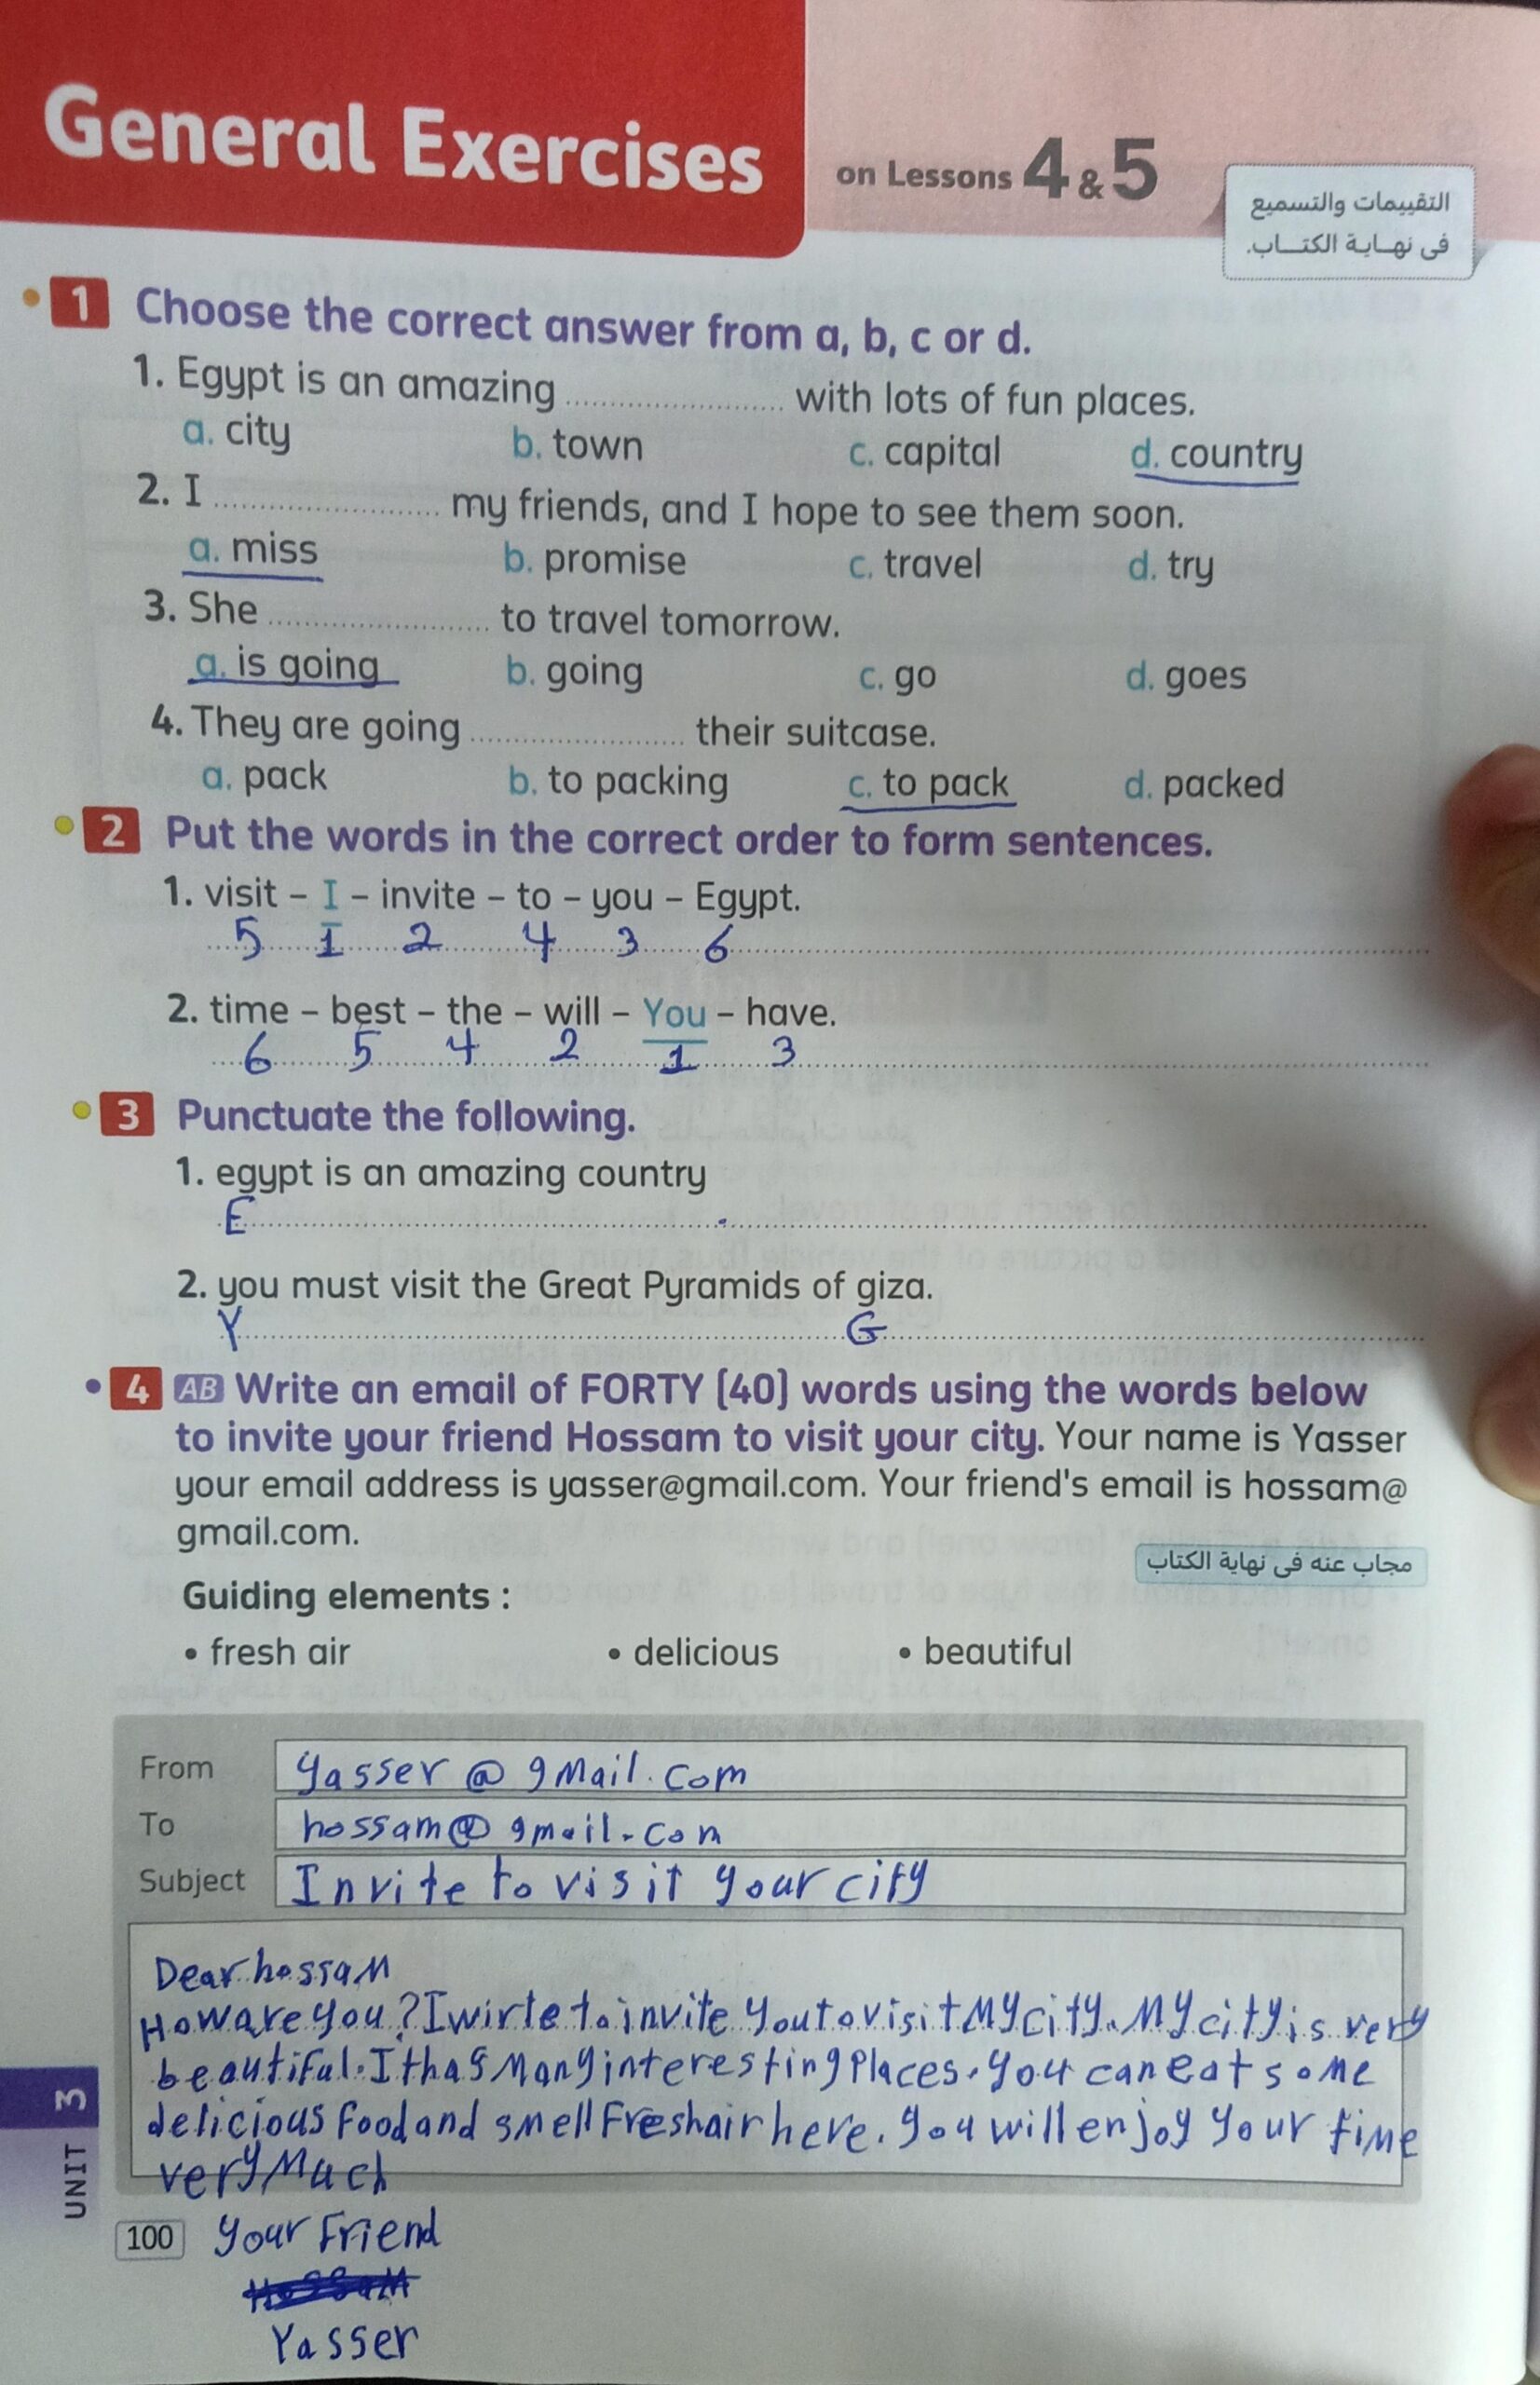 General Exercises
on Lessons 4 & 5
التقييمات والتسميع
فى نهاية الكتاب.
1 Choose the correct answer from a, b, c or d.
1. Egypt is an amazing ........................ with lots of fun places.
a. city b. town c. capital d. country
2. I ........................ my friends, and I hope to see them soon.
a. miss b. promise c. travel d. try
3. She ........................ to travel tomorrow.
a. is going b. going c. go d. goes
4. They are going ........................ their suitcase.
a. pack b. to packing c. to pack d. packed
2 Put the words in the correct order to form sentences.
1. visit – I – invite – to – you – Egypt.
5 1 2 4 3 6
2. time – best – the – will – You – have.
6 5 4 2 1 3
3 Punctuate the following.
1. egypt is an amazing country
E .
2. you must visit the Great Pyramids of giza.
Y G
4 AB Write an email of FORTY (40) words using the words below
to invite your friend Hossam to visit your city. Your name is Yasser
your email address is yasser@gmail.com. Your friend's email is hossam@
gmail.com.
مجاب عنه فى نهاية الكتاب
Guiding elements :
• fresh air • delicious • beautiful
From yasser @ gmail. com
To hossam@ gmail. con
Subject Invite to visit your city
Dear hossam
How are you? I wirte to invite you to visit My city. My city is very
beautiful. It has many interesting places. you can eat some
delicious food and smell Fresh air here. you will enjoy your time
very Much
your Friend
Hossam
Yasser
UNIT 3
100